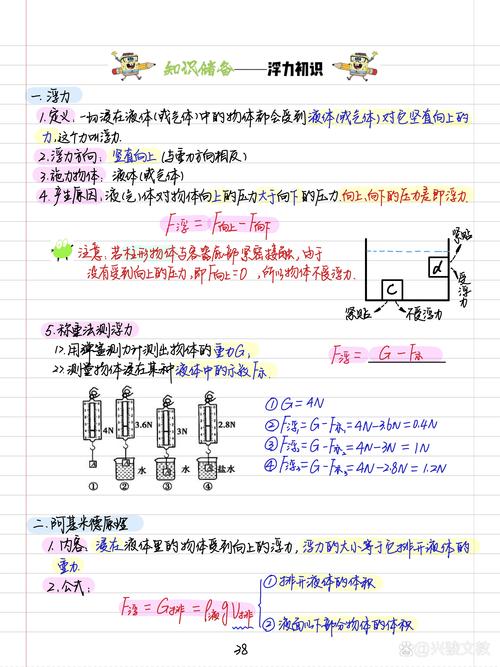 知识储备——浮力初识
一.浮力
1.定义:一切浸在液体(或气体)中的物体都会受到液体(或气体)对它竖直向上的
力,这个力叫浮力.
2.浮力方向:竖直向上(与重力方向相反)
3.施力物体:液体(或气体)
4.产生原因:液(气)体对物体向上的压力大于向下的压力.向上、向下的压力差即浮力.
F浮=F向上-F向下
注意:若柱形物体与容器底部紧密接触,由于
没有受到向上的压力,即F向上=0,所以物体不受浮力.
紧贴
d
受浮力
C
紧贴
不受浮力
5.称重法测浮力
1>.用弹簧测力计测出物体的重力G,
2>.测量物体浸在某种液体中的示数F示.
F浮=G-F示
4N
3.6N
3N
2.8N
水
水
盐水
①
②
③
④
①G=4N
②F浮1=G-F示1=4N-3.6N=0.4N
③F浮2=G-F示2=4N-3N=1N
④F浮3=G-F示3=4N-2.8N=1.2N
二.阿基米德原理
1.内容:浸在液体里的物体受到向上的浮力,浮力的大小等于它排开液体的
重力.
2.公式:
F浮=G排=ρ液gV排
①排开液体的体积
②液面以下部分物体的体积
38
兴骏文教